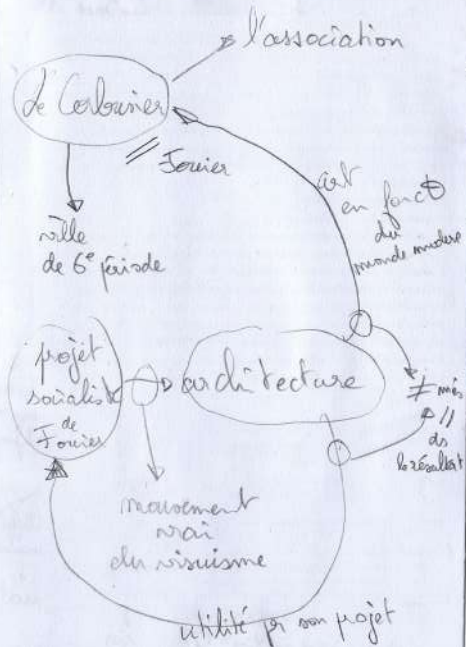 l'association
Le Corbusier
// Fourier
ville
de 6e période
art
en fonct°
du
monde moderne
projet
socialiste
de
Fourier
architecture
≠ mais
//
ds
le résultat
mouvement
vrai
du
utilité pr son projet